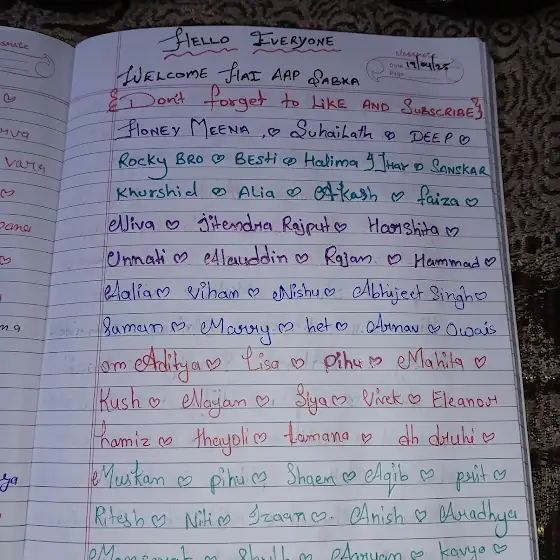 HELLO EVERYONE
WELCOME HAI AAP SABKA
Date 19/04/25
Page
{Don't forget to LIKE AND SUBSCRIBE}
HONEY MEENA ♡ Suhailath ♡ DEEP ♡
ROCKY BRO ♡ BESTI ♡ Halima ♡ SANSKAR
Khurshid ♡ Alia ♡ Akash ♡ faiza ♡
Niva ♡ Jitendra Rajput ♡ Harshita ♡
Unnati ♡ Alauddin ♡ Rajan ♡ Hammad ♡
Aalia ♡ Vihan ♡ Nishu ♡ Abhijeet Singh ♡
Suman ♡ Marry ♡ het ♡ Arnav ♡ Owais
om Aditya ♡ Lisa ♡ Pihu ♡ Mahita ♡
Kush ♡ Nayan ♡ Siya ♡ Vivek ♡ Eleanor
hamiz ♡ thayoli ♡ tamana ♡ dh druhi ♡
Muskam ♡ pihu ♡ Shaem ♡ Aqib ♡ prit ♡
Ritesh ♡ Niti ♡ Izaan ♡ Anish ♡ Aradhya
Aaryan ♡ Kavya ♡